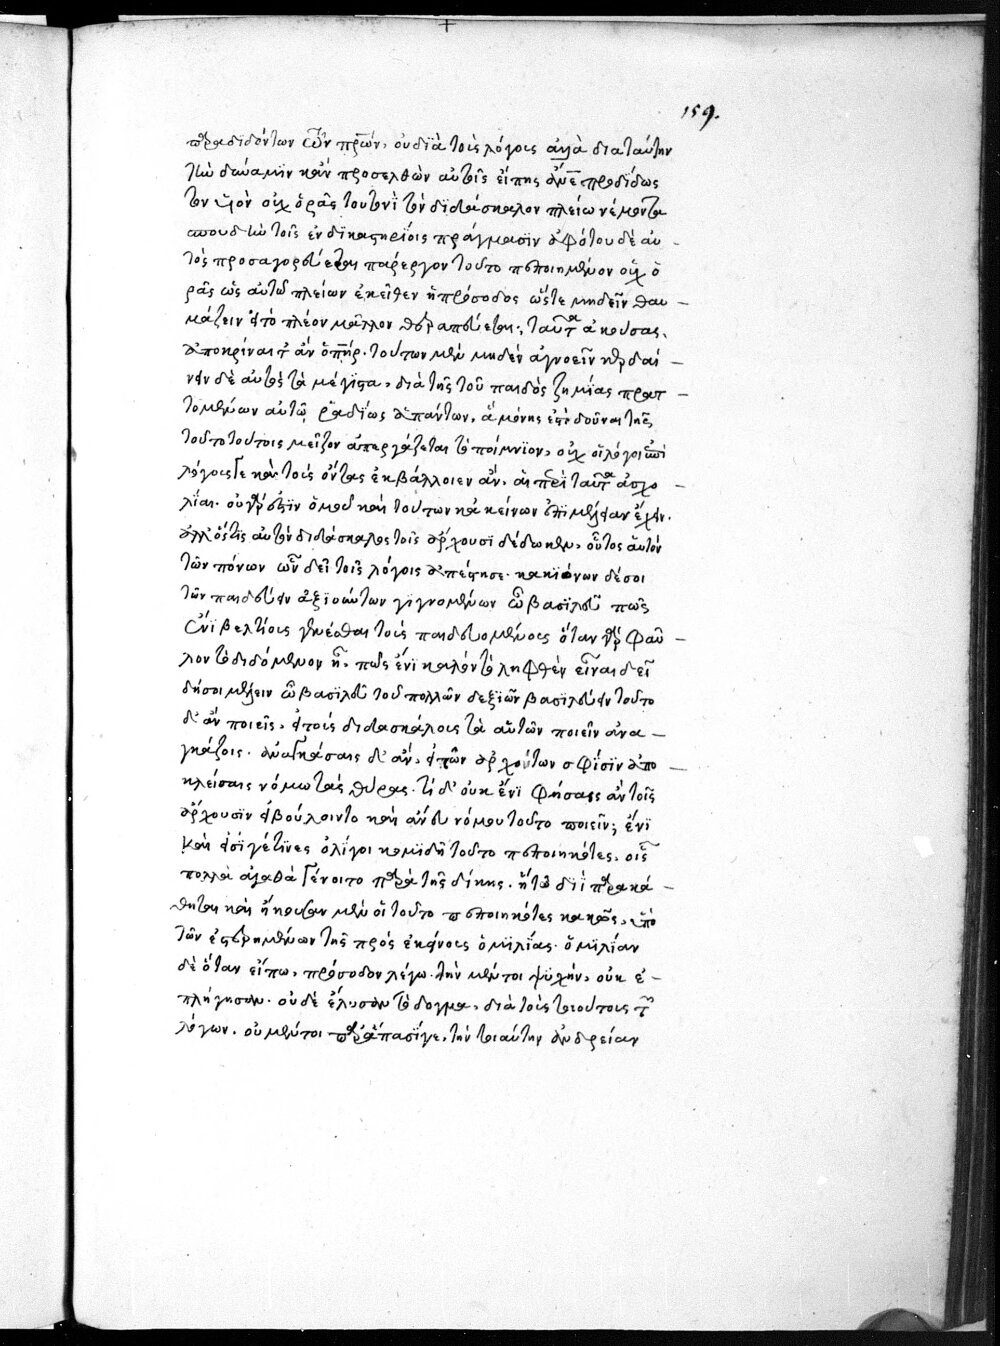 159.
παραδιδόντων τῶν πρῶν, οὐ διὰ τοὺς λόγους ἀλλὰ διὰ ταύτην
τὴν δύναμιν κἂν προσελθὼν αὐτοῖς εἴπῃς ἄνε προδίδως
τὸν υἱὸν οὐχ ὁρᾷς τουτονὶ τὸν διδάσκαλον πλείω νέμοντα
σπουδὴν τοῖς ἐν δικαστηρίοις πράγμασιν ἀφ' ὅτου δὲ αὐ
τὸς προσαγορεύεται πάρεργον τοῦτο πεποιημένον οὐχ ὁ
ρᾷς ὡς αὐτῷ πλείων ἐκεῖθεν ἡ πρόσοδος ὥστε μηδεῖν θαυ
μάζειν εἰ τὸ πλέον μᾶλλον θεραπεύεται; ταῦτα ἀκούσας,
ἀποκρίναιτ' ἂν ὁ πηρ. τούτων μὲν μηδὲν ἀγνοεῖν κερδαί
νειν δὲ αὐτὸς τὰ μέγιστα, διὰ τῆς τοῦ παιδὸς ζημίας πραττ
ομένων αὐτῷ ῥᾳδίως ἁπάντων, ἃ μόνης ἐστὶ δοῦναι τῆς
τοῦτο τούτοις μεῖζον ἀπεργάζεται τὸ ποίμνιον, οὐχ οἱ λόγοι ἐπεὶ
λόγους γε καὶ τοὺς ὄντας ἐκβάλλοιεν ἄν, αἱ περὶ ταῦτα ἀσχο
λίαι. οὐ γάρ ἐστιν ὁμοῦ καὶ τούτων κἀκείνων ἐπιμέλειαν ἔχειν.
ἀλλ' ὅστις αὐτὸν διδάσκαλος τοῖς ἄρχουσι δέδωκεν, οὗτος αὑτὸν
τῶν πόνων ὧν δεῖ τοῖς λόγοις ἀπέστησε. κακιόνων δέ σοι
τῶν παιδεύειν ἀξιούντων γιγνομένων ὦ βασιλεῦ πῶς
ἔνι βελτίους γενέσθαι τοὺς παιδευομένους ὅταν γὰρ φαῦ
λον τὸ διδόμενον ᾖ, πῶς ἔνι καλὸν τὸ ληφθὲν εἶναι δεῖ
δή σοι μέλειν ὦ βασιλεῦ τοῦ πολλῶν δεξιῶν βασιλεύειν τοῦτο
δ' ἂν ποιεῖς, εἰ τοὺς διδασκάλους τὰ αὑτῶν ποιεῖν ἀνα
γκάζοις. ἀναγκάσαις δ' ἄν, εἰ τῶν ἀρχόντων σφίσιν ἀπο
κλείσαις νόμῳ τὰς θύρας. τί δ' οὐκ ἔνι φήσαις ἂν τοῖς
ἄρχουσιν εἰ βούλοιντο καὶ ἄνευ νόμου τοῦτο ποιεῖν; ἔνι
καὶ εἰσί γέ τινες ὀλίγοι κομιδῇ τοῦτο πεποιηκότες, οἷς
πολλὰ ἀγαθὰ γένοιτο παρὰ τῆς δίκης. ἣ τῷ διὶ παρακά
θηται καὶ ἤκουσαν μὲν οἱ τοῦτο πεποιηκότες κακῶς, ὑπὸ
τῶν ἐστερημένων τῆς πρὸς ἐκείνους ὁμιλίας. ὁμιλίαν
δὲ ὅταν εἴπω, πρόσοδον λέγω. τὴν μέντοι ψυχήν, οὐκ ἐ
πλήγησαν. οὐδὲ ἔλυσαν τὸ δόγμα, διὰ τοὺς τοιούτους τῶν
λόγων. οὐ μέντοι παρὰ πᾶσί γε, τὴν τοιαύτην ἀνδρείαν